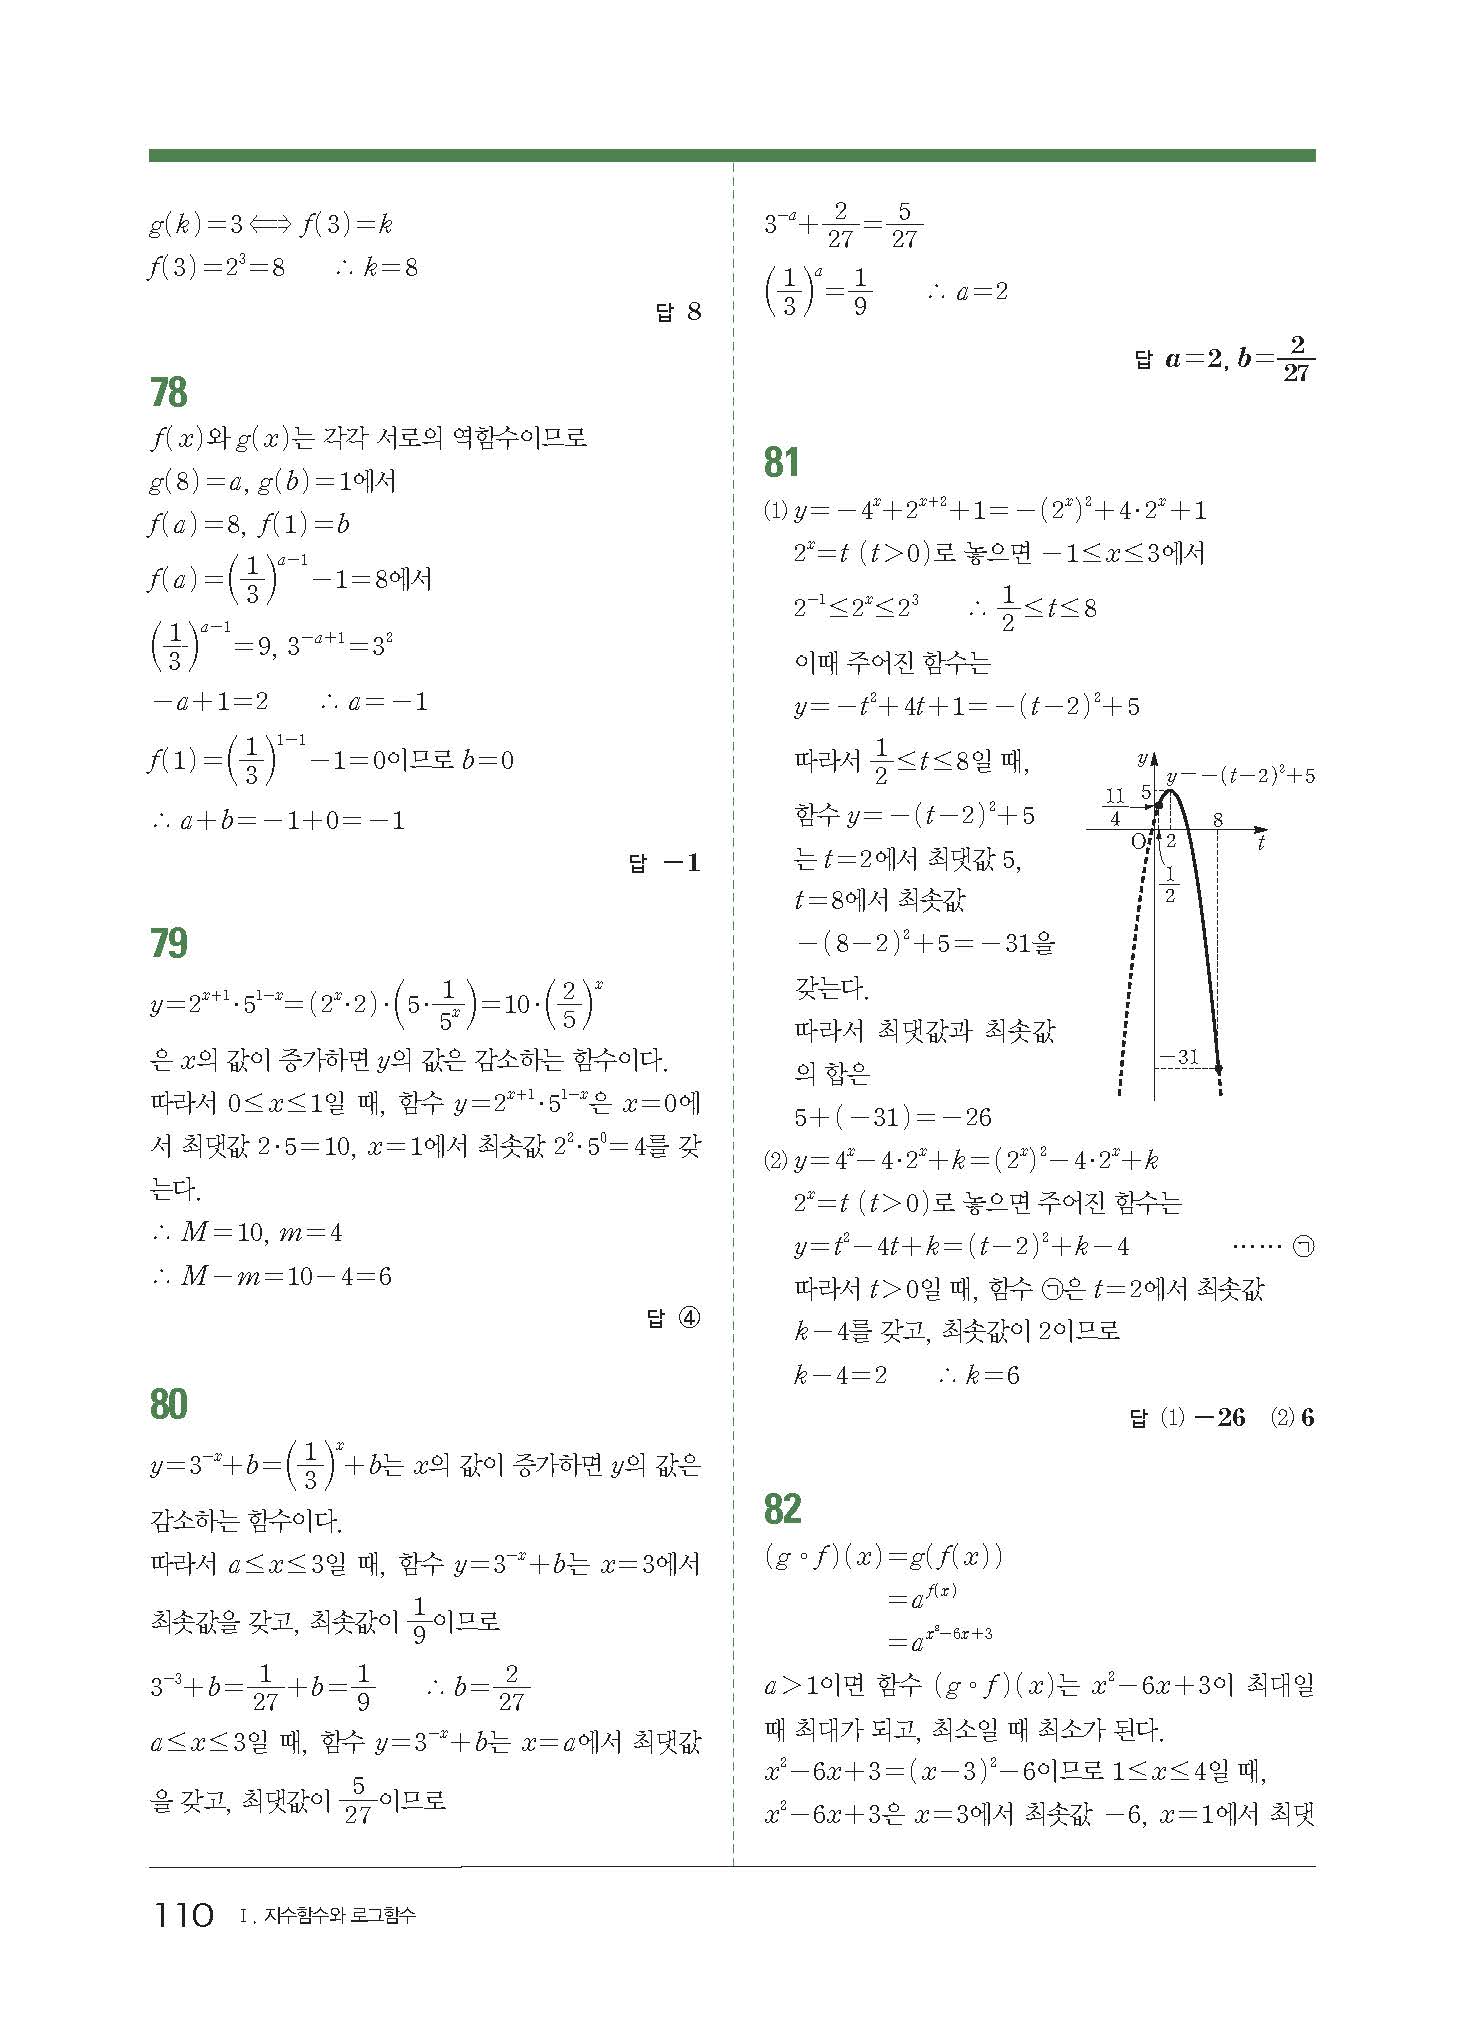 g(k)=3 ⟺ f(3)=k
f(3)=2³=8 ∴ k=8
답 8
78
f(x)와 g(x)는 각각 서로의 역함수이므로
g(8)=a, g(b)=1에서
f(a)=8, f(1)=b
f(a)=(1/3)^(a-1)-1=8에서
(1/3)^(a-1)=9, 3^(-a+1)=3²
-a+1=2 ∴ a=-1
f(1)=(1/3)^(1-1)-1=0이므로 b=0
∴ a+b=-1+0=-1
답 -1
79
y=2^(x+1)·5^(1-x)=(2^x·2)·(5·1/5^x)=10·(2/5)^x
은 x의 값이 증가하면 y의 값은 감소하는 함수이다.
따라서 0≤x≤1일 때, 함수 y=2^(x+1)·5^(1-x)은 x=0에
서 최댓값 2·5=10, x=1에서 최솟값 2²·5⁰=4를 갖
는다.
∴ M=10, m=4
∴ M-m=10-4=6
답 ④
80
y=3^(-x)+b=(1/3)^x+b는 x의 값이 증가하면 y의 값은
감소하는 함수이다.
따라서 a≤x≤3일 때, 함수 y=3^(-x)+b는 x=3에서
최솟값을 갖고, 최솟값이 1/9이므로
3^(-3)+b=1/27+b=1/9 ∴ b=2/27
a≤x≤3일 때, 함수 y=3^(-x)+b는 x=a에서 최댓값
을 갖고, 최댓값이 5/27이므로
3^(-a)+2/27=5/27
(1/3)^a=1/9 ∴ a=2
답 a=2, b=2/27
81
⑴ y=-4^x+2^(x+2)+1=-(2^x)²+4·2^x+1
2^x=t (t>0)로 놓으면 -1≤x≤3에서
2^(-1)≤2^x≤2³ ∴ 1/2≤t≤8
이때 주어진 함수는
y=-t²+4t+1=-(t-2)²+5
따라서 1/2≤t≤8일 때,
함수 y=-(t-2)²+5
는 t=2에서 최댓값 5,
t=8에서 최솟값
-(8-2)²+5=-31을
갖는다.
따라서 최댓값과 최솟값
의 합은
5+(-31)=-26
y
y=-(t-2)²+5
5
11/4
8
O
2
t
1/2
-31
⑵ y=4^x-4·2^x+k=(2^x)²-4·2^x+k
2^x=t (t>0)로 놓으면 주어진 함수는
y=t²-4t+k=(t-2)²+k-4 …… ㉠
따라서 t>0일 때, 함수 ㉠은 t=2에서 최솟값
k-4를 갖고, 최솟값이 2이므로
k-4=2 ∴ k=6
답 ⑴ -26 ⑵ 6
82
(g∘f)(x)=g(f(x))
=a^(f(x))
=a^(x²-6x+3)
a>1이면 함수 (g∘f)(x)는 x²-6x+3이 최대일
때 최대가 되고, 최소일 때 최소가 된다.
x²-6x+3=(x-3)²-6이므로 1≤x≤4일 때,
x²-6x+3은 x=3에서 최솟값 -6, x=1에서 최댓
110 Ⅰ. 지수함수와 로그함수